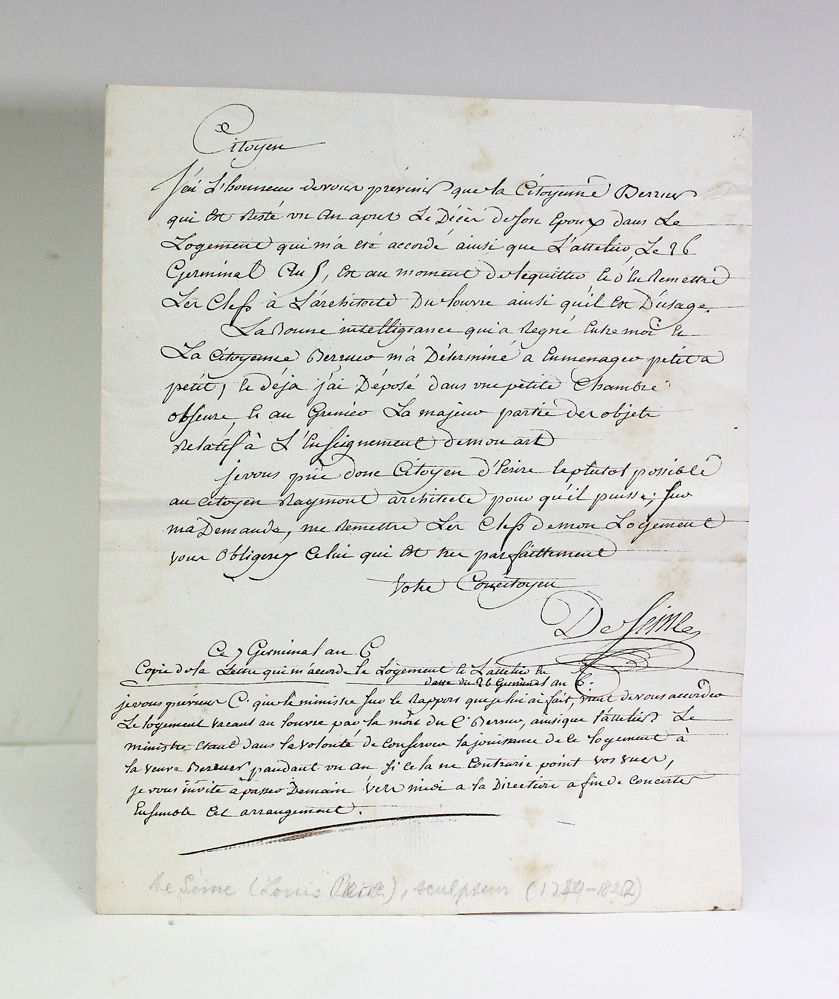 Citoyen
J'ai L'honneur de vous prévenir que la Citoyenne Berruer
qui Est Resté un an après Le Décès de son Epoux dans Le
Logement qui m'a été accordé ainsi que L'attelier, Le 26
Germinal An 5, Est au moment de le quitter et d'en Remettre
Les Clefs à L'architecte Du Louvre ainsi qu'il Est D'usage.
La Bonne intelligeance qui a Regné Entre moi et
La Citoyenne Berruer m'a Détérminé a Emménager petit a
petit, et déja j'ai Déposé dans une petite Chambre
obscure et au Grenier La majeur partie des objets
Relatifs à L'Enseignement de mon art
je vous prie donc Citoyen d'Ecrire le plutot possible
au citoyen Raymont architecte pour qu'il puisse, sur
ma Demande, me Remettre Les Clefs de mon Logement
vous obligerez Celui qui Est très parfaittement
Votre Concitoyen
De Seine
Ce 7 Germinal an 6
Copie de la Lettre qui m'accorde le Logement et L'attelier de
datte du 26 Germinal an
je vous préviens C. que le ministre sur le Rapport que je lui ai fait, vient de vous accorder
Le logement vacant au Louvre par la mort du C. Berruer, ainsi que l'attelier. Le
ministre Etant dans la volonté de Conserver la jouissance de ce logement à
la veuve Berruer pandant un an si cela ne Contrarie point vos vues,
je vous invite à passer Demain vers midi a la Direction afin de concerter
Ensemble Cet arrangement.
De Seine (Louis), sculpteur